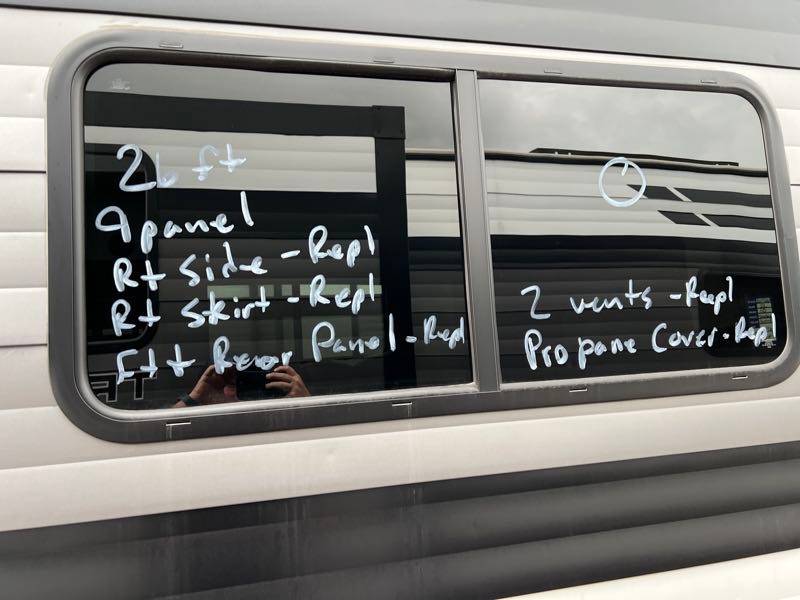 26 ft
9 panel
Rt side - Repl
Rt skirt - Repl
Frt Rear Panel - Repl
2 vents - Repl
Propane Cover - Repl